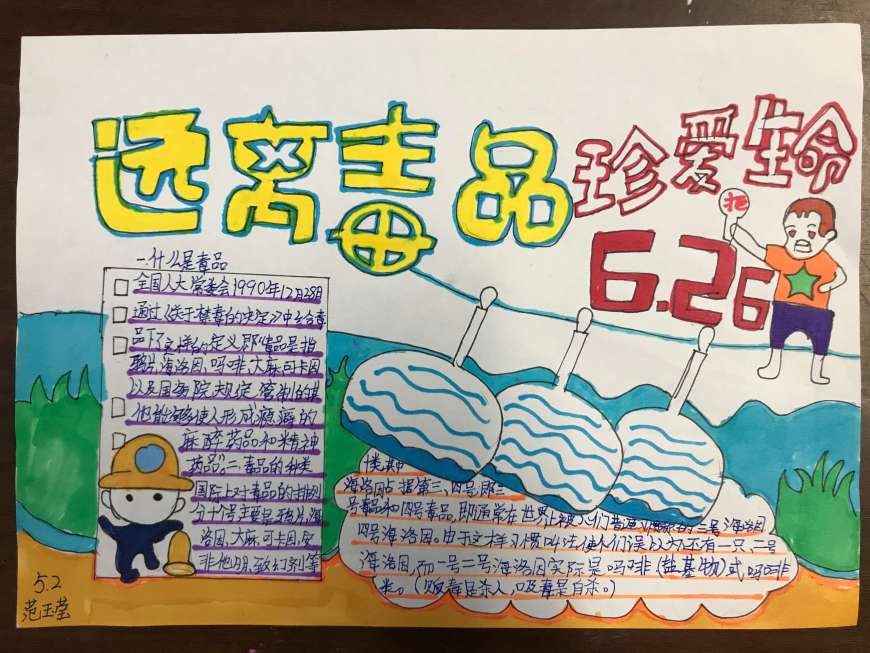 远离毒品
珍爱生命
6.26
拒
一什么是毒品
全国人大常委会1990年12月28日
通过《关于禁毒的决定》中给毒
品下了这样的定义即"毒品是指
鸦片海洛因、吗啡、大麻可卡因
以及国务院规定管制的其
他能够使人形成瘾癖的
麻醉药品和精神
药品"二、毒品的种类
国际上对毒品的排列
分十个号主要是鸦片、海
洛因、大麻、可卡因、安
非他明、致幻剂等
十类、种
海洛因占据第三、四号,即三
号毒品和四号毒品,即通常在世界上被人们普遍习惯 三号海洛因
四号海洛因。由于这样习惯叫法使人们误以为还有一只、二号
海洛因,而一号二号海洛因实际是吗啡(盐基物)式,吗啡
类。(贩毒是杀人,吸毒是自杀。)
5.2
范玉莹